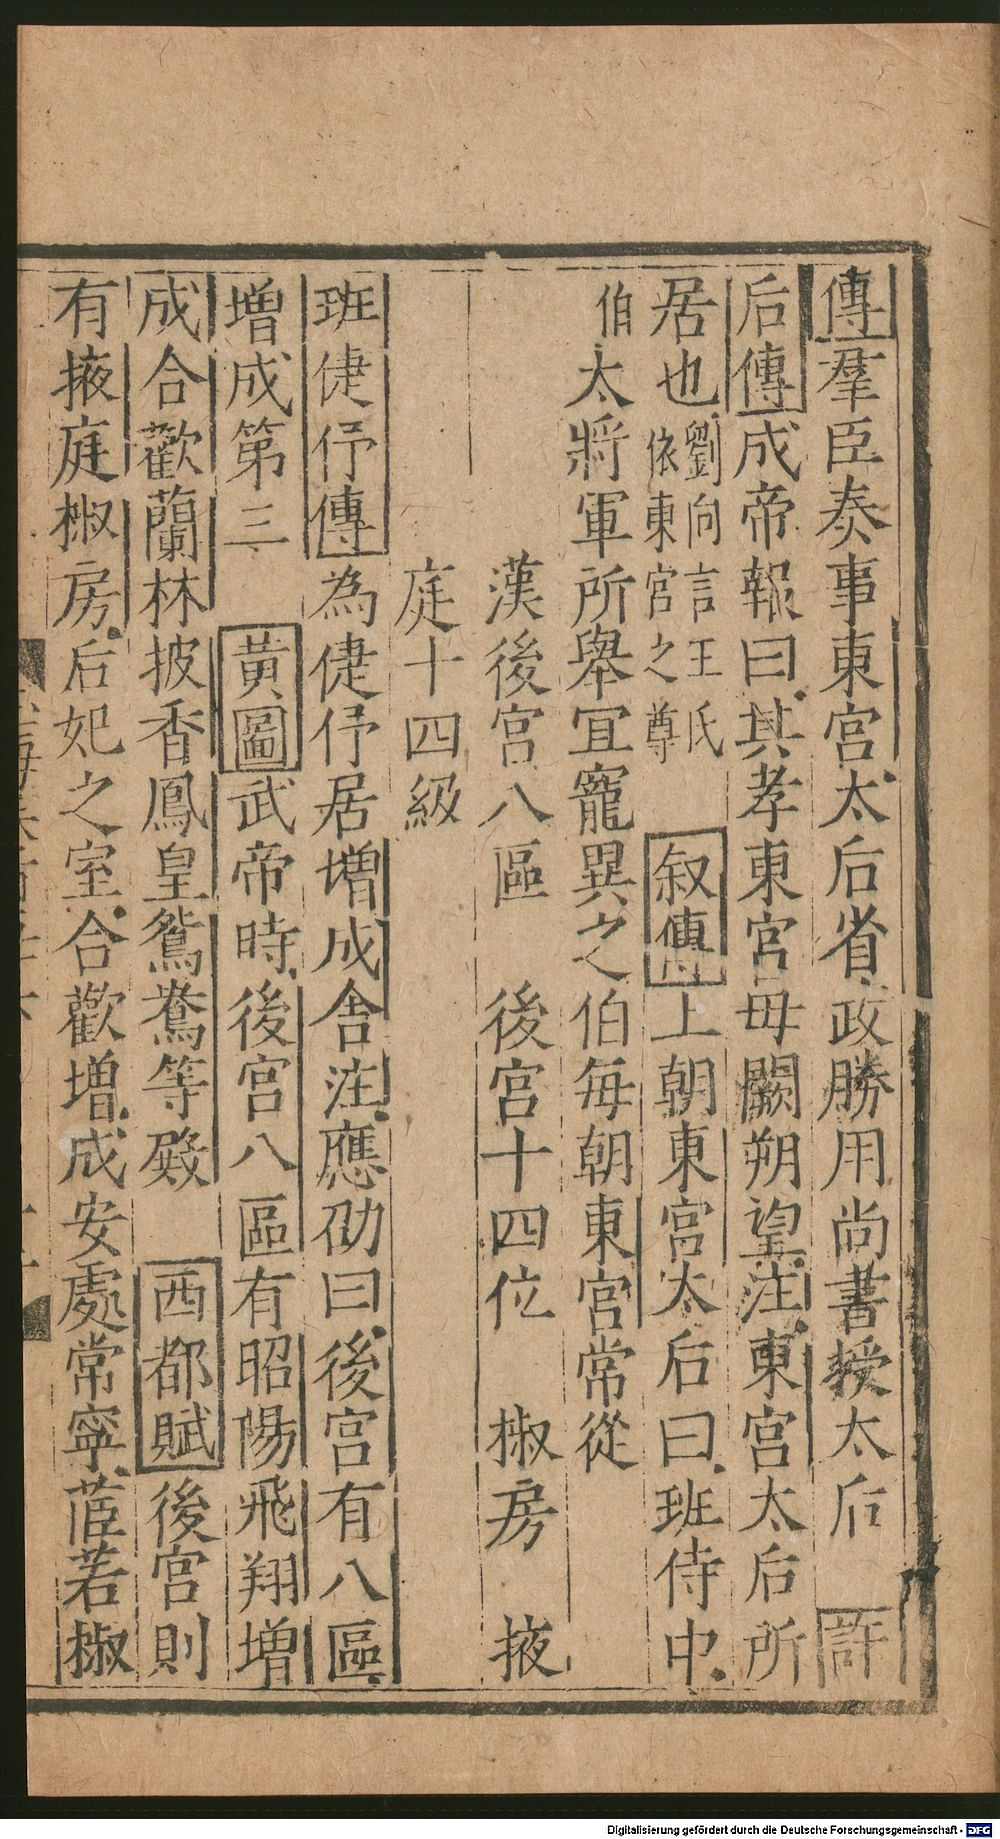 傳羣臣奏事東宮太后省政勝用尚書授太后　許
后傳成帝報曰其孝東宮毋闕朔望注東宮太后所
居也劉向言王氏依東宮之尊　叙傳上朝東宮太后曰班侍中
伯太將軍所舉宜寵異之伯每朝東宮常從
漢後宮八區　後宮十四位　椒房　掖
庭十四級
班倢伃傳為倢伃居增成舍注應劭曰後宮有八區
增成第三　黃圖武帝時後宮八區有昭陽飛翔增
成合歡蘭林披香鳳皇鴛鴦等殿　西都賦後宮則
有掖庭椒房后妃之室合歡增成安處常寧茝若椒
Digitalisierung gefördert durch die Deutsche Forschungsgemeinschaft - DFG